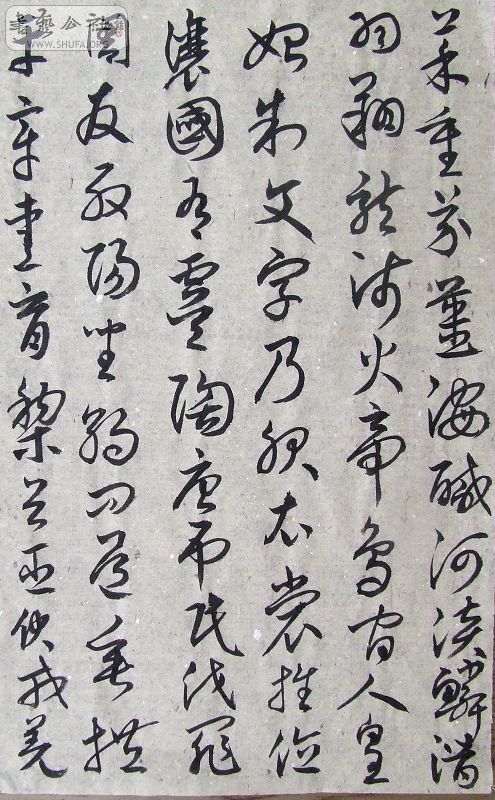 菜重芥薑海鹹河淡鱗潛
羽翔龍師火帝鳥官人皇
始制文字乃服衣裳推位
讓國有虞陶唐吊民伐罪
周發殷湯坐朝問道垂拱
平章愛育黎首臣伏戎羌
書藝公社
WWW.SHUFA.ORG